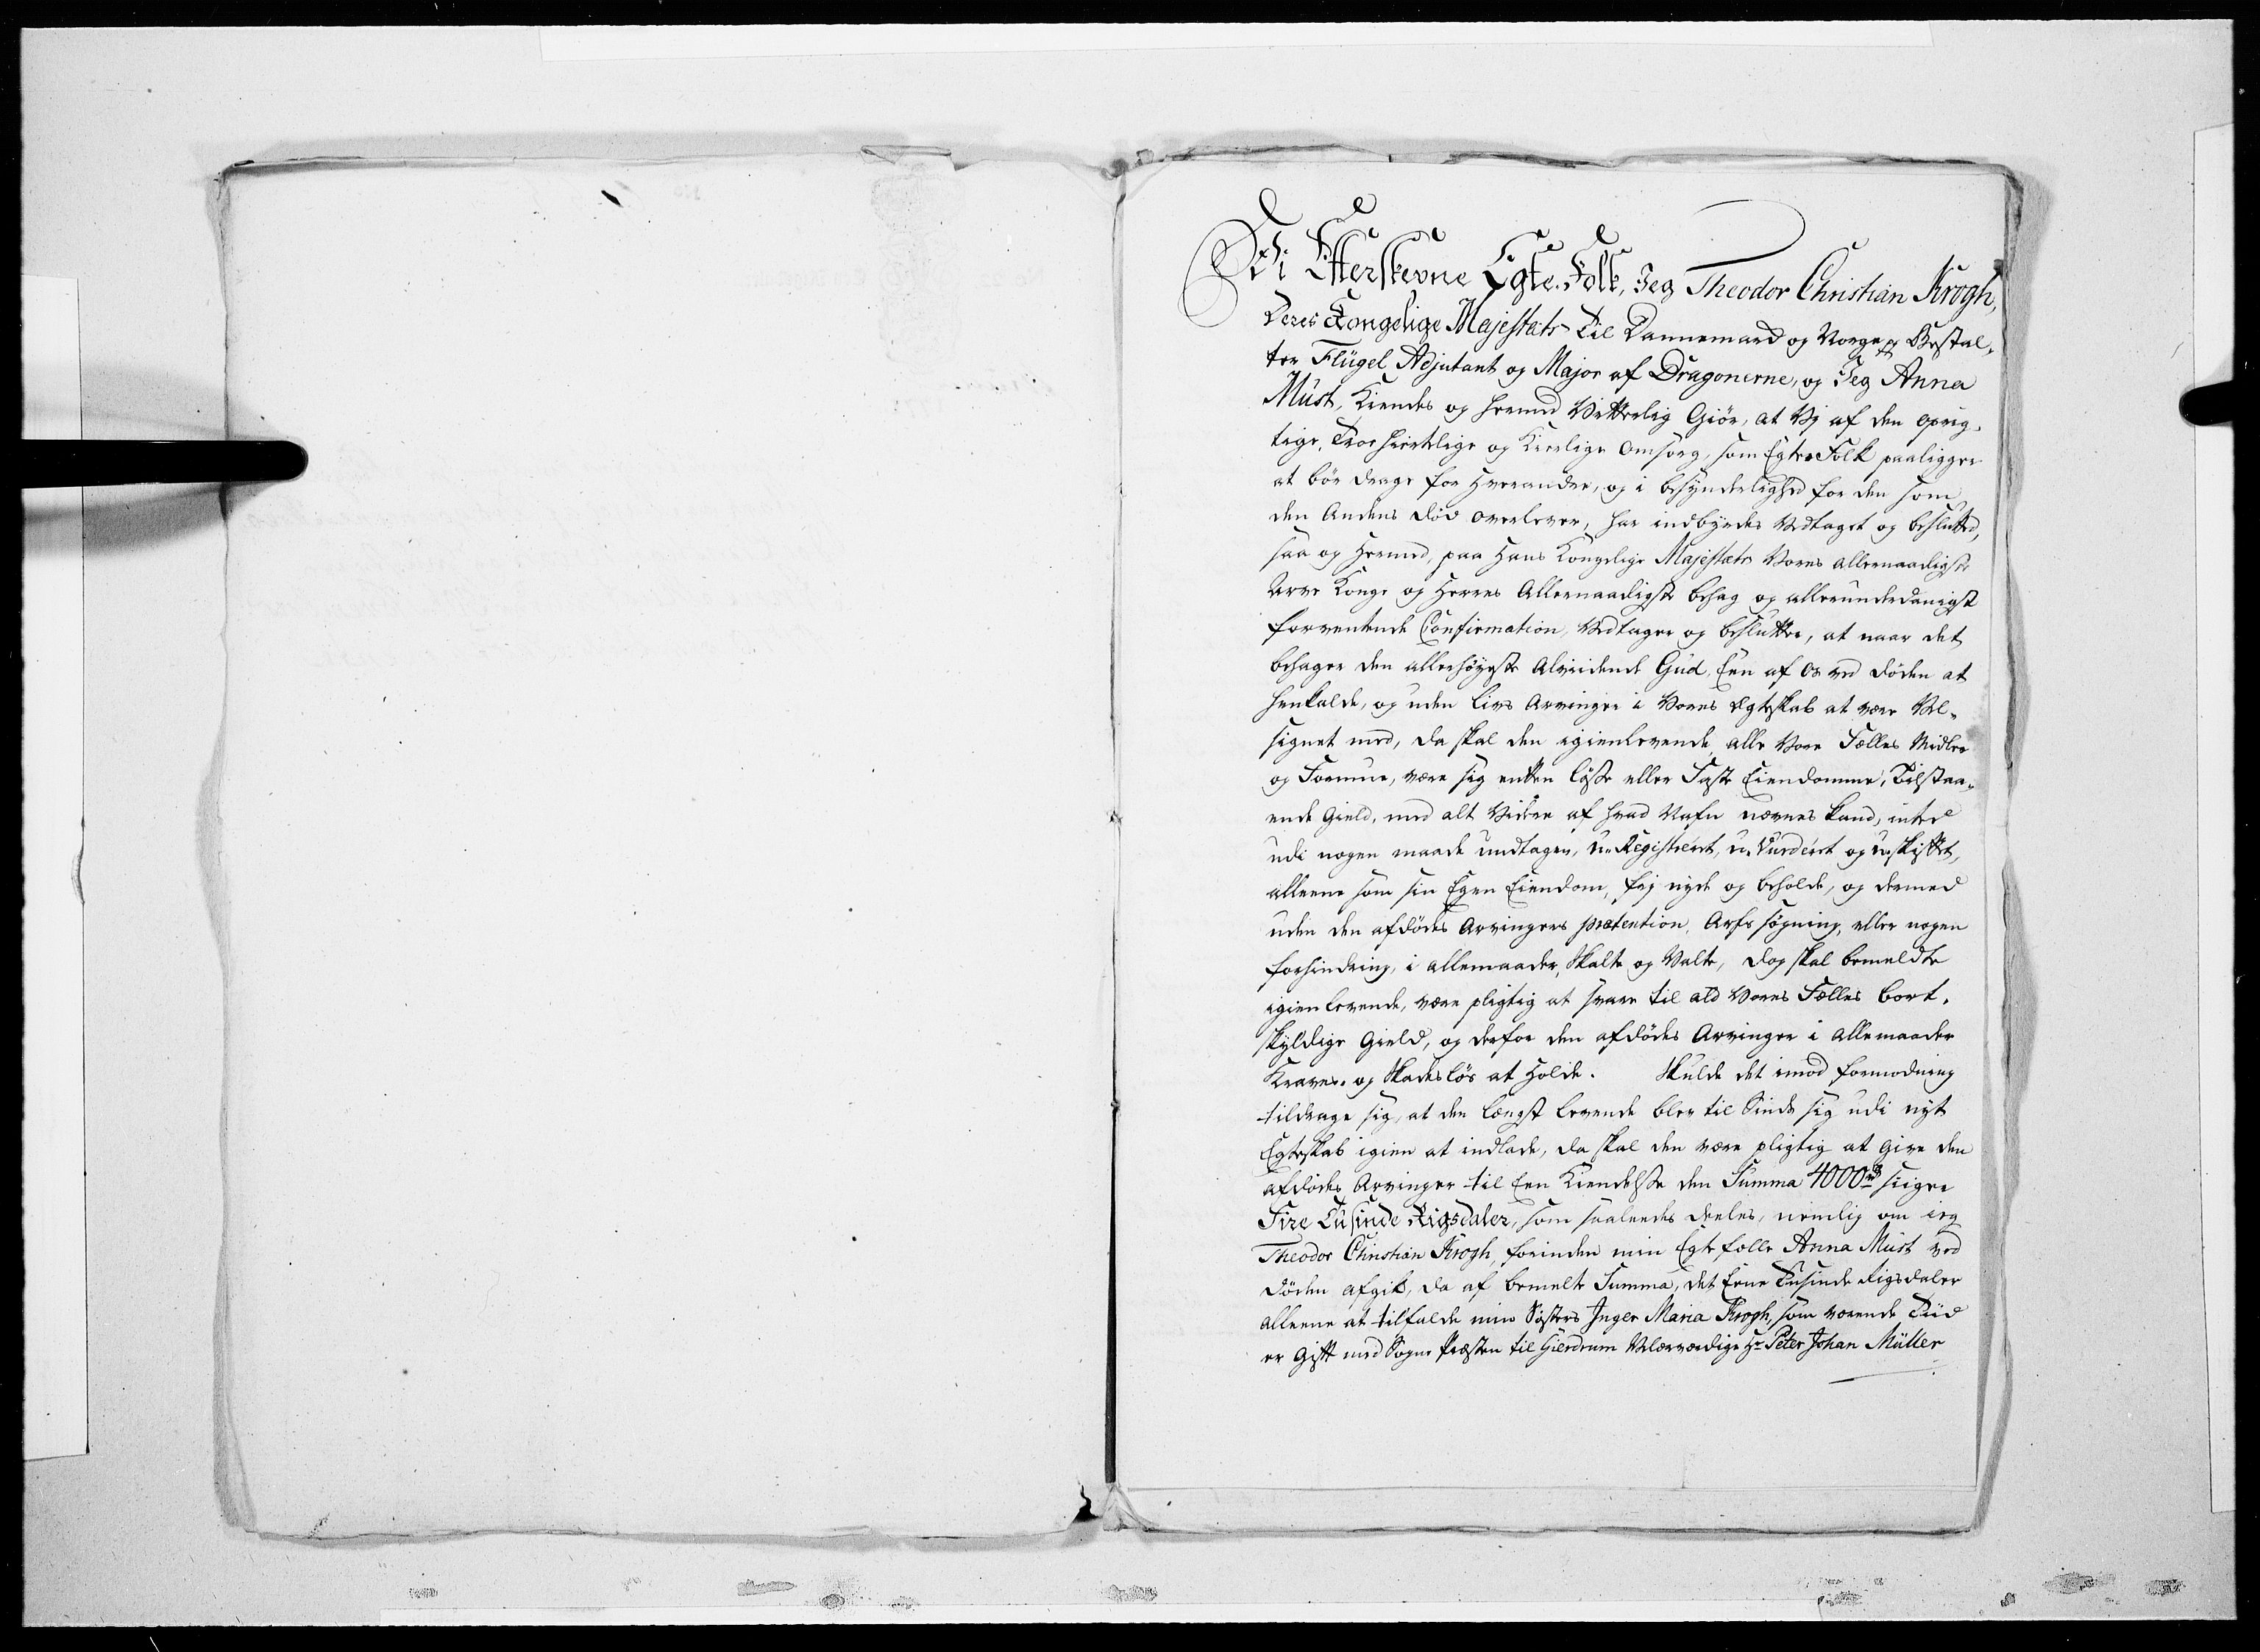 Vi Efterskevne Egte-Folk, Jeg Theodor Christian Krogh,
Deres Kongelige Majestæts til Dannemark og Norge p Bestal-
ter Flügel Adjutant og Major af Dragonerne, og Jeg Anna
Must, Kiendes og hermed Vitterlig Giör, at Vj af den oprig-
tige, Troehiertelige og Kierlige omsorg, som Egte-Folk paaligger
at bör drage for Hverandre, og i besynderlighed for den som
den Andens död overlever, har indbyrdes Vedtaget og beslutted,
saa og Hermed, paa Hans Kongelige Majestæts Vores allernaadigste
Arve Konge og Herres Allernaadigste behag og allerunderdanigst
forventende Confirmation, Vedtager og beslutter, at naar det
behager den allerhöyeste Alviidende Gud, Een af Os ved döden at
henkalde, og uden livs Arvinger i Vores Egteskab at være Vel-
signet med, da skal den igienlevende alle Vore Fælles Midler
og Formue, være sig enten löse eller Faste Eiendomme, Tilstaa-
ende Gield, med alt Videre af hvad Nafn nævnes kand, intet
udi nogen maade undtagen, U-Registreret, U-Vurderet og U-skiftet,
alleene som sin Egen Eiendom, frj nyde og beholde, og dermed
uden den afdödes Arvingers prætention, Arfs sögning, eller nogen
forhindring, i allemaader, Skalte og Valte, dog skal bemeldte
igienlevende, være pligtig at svare til ald Vores Fælles bort-
skyldige Gield, og derfor den afdödes Arvinger i allemaader
Kraves- og Skadeslös at Holde. Skulde det imod formodning
tildrage sig, at den længst levende blev til Sinds sig udi nyt
Egteskab igien at indlade, da skal den være pligtig at give den
afdödes Arvinger til Een Kiendelse den Summa 4000 rd siiger
Fire Tusinde Rigsdaler, som saaleedes deeles, nemlig om ieg
Theodor Christian Krogh, forinden min Egtefælle Anna Must ved
Döden afgik, da af bemelte Summa, det Eene Tusinde Rigsdaler
alleene at tilfalde min Sösters Inger Maria Krogh, som værende Tiid
er Gift med Sogne Præsten til Gierdrum Velærværdige Hr Peter Johan Müller